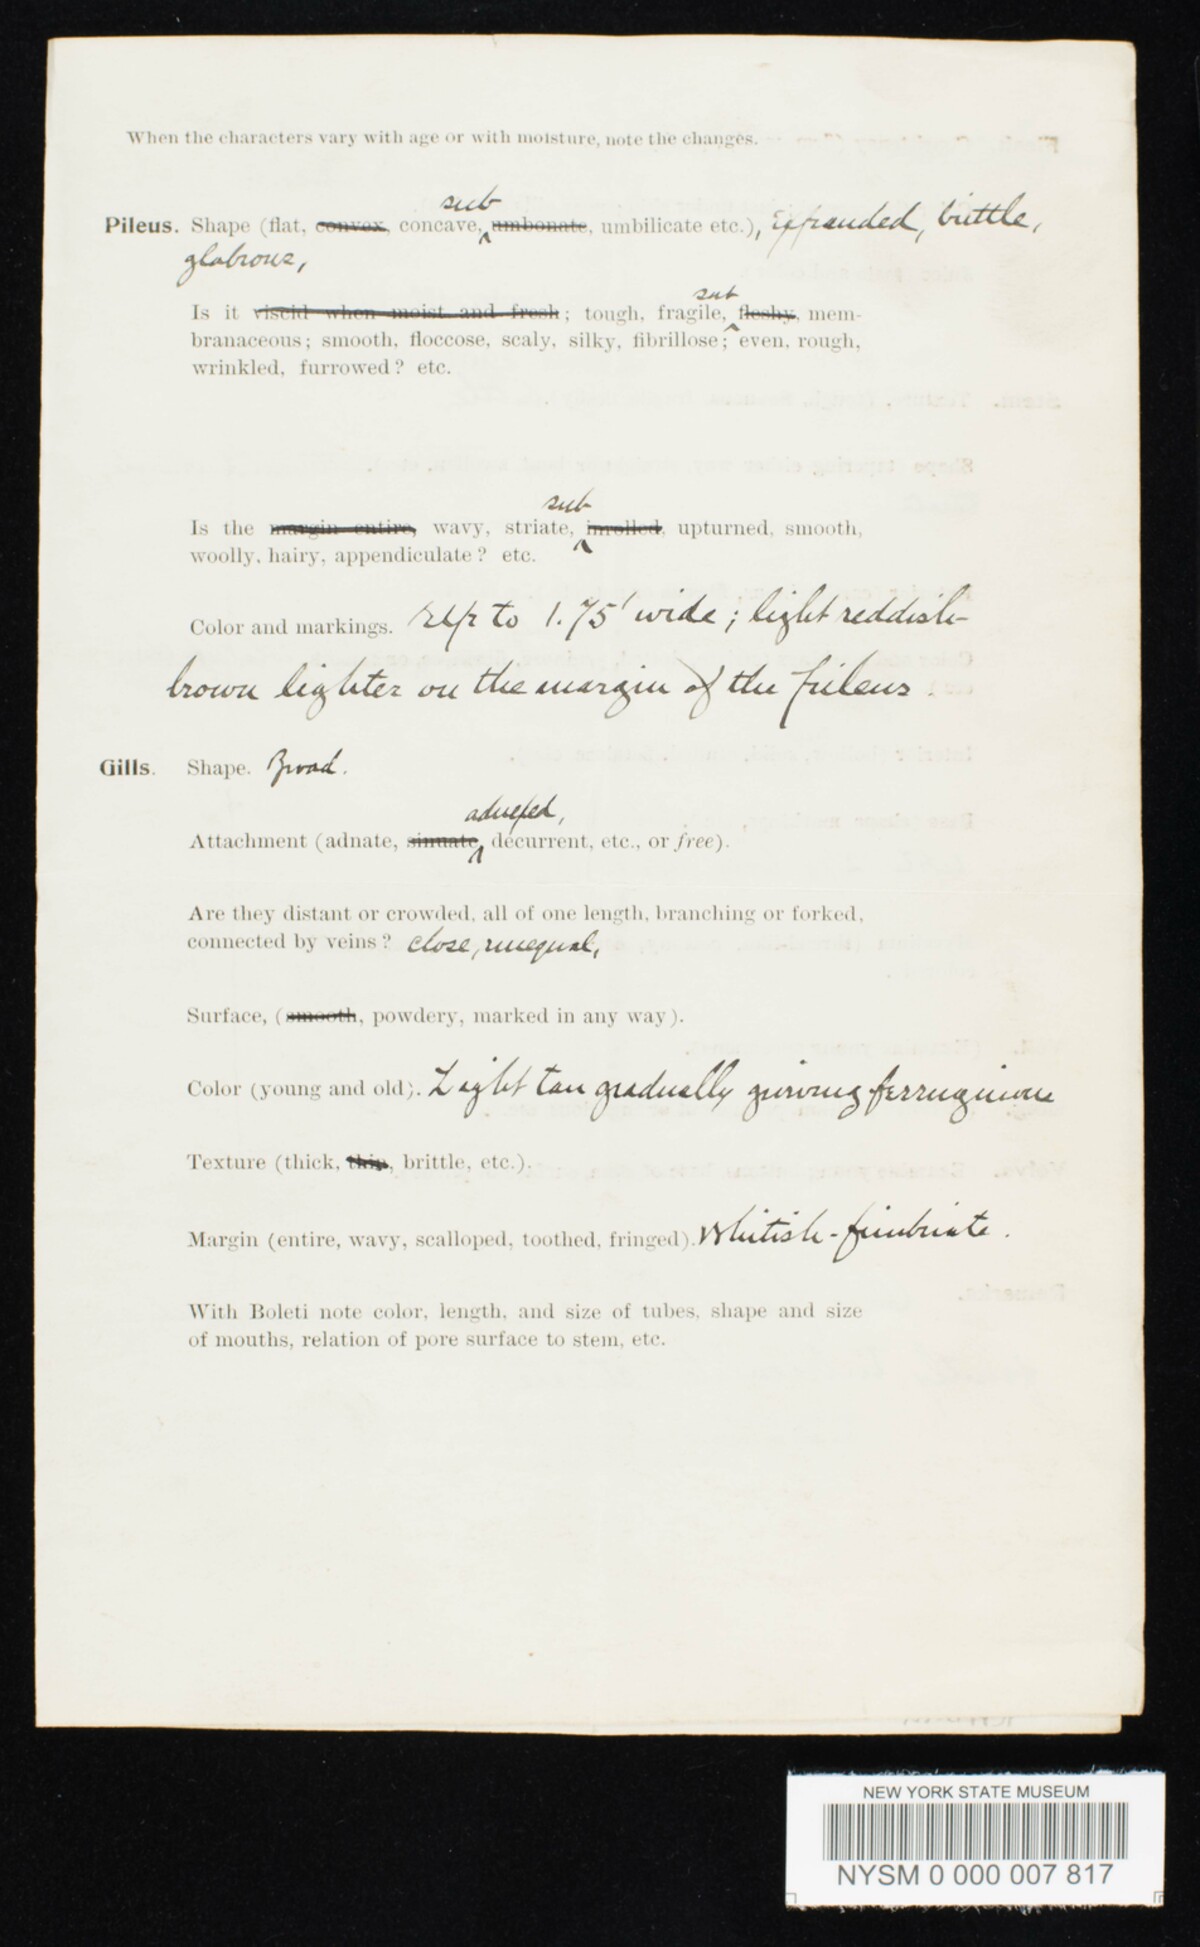 When the characters vary with age or with moisture, note the changes.
sub
Pileus. Shape (flat, convex, concave, umbonate, umbilicate etc.), Expanded, brittle,
glabrous,
sub
Is it viscid when moist and fresh; tough, fragile, fleshy, mem-
branaceous; smooth, floccose, scaly, silky, fibrillose; even, rough,
wrinkled, furrowed? etc.
sub
Is the margin entire, wavy, striate, inrolled, upturned, smooth,
woolly, hairy, appendiculate? etc.
Color and markings. Up to 1.75' wide; light reddish-
brown lighter on the margin of the pileus.
Gills. Shape. Broad.
adnexed,
Attachment (adnate, sinuate, decurrent, etc., or free).
Are they distant or crowded, all of one length, branching or forked,
connected by veins? close, unequal,
Surface, (smooth, powdery, marked in any way).
Color (young and old). Light tan gradually growing ferruginous
Texture (thick, thin, brittle, etc.).
Margin (entire, wavy, scalloped, toothed, fringed). Whitish-fimbriate.
With Boleti note color, length, and size of tubes, shape and size
of mouths, relation of pore surface to stem, etc.
NEW YORK STATE MUSEUM
NYSM 0 000 007 817